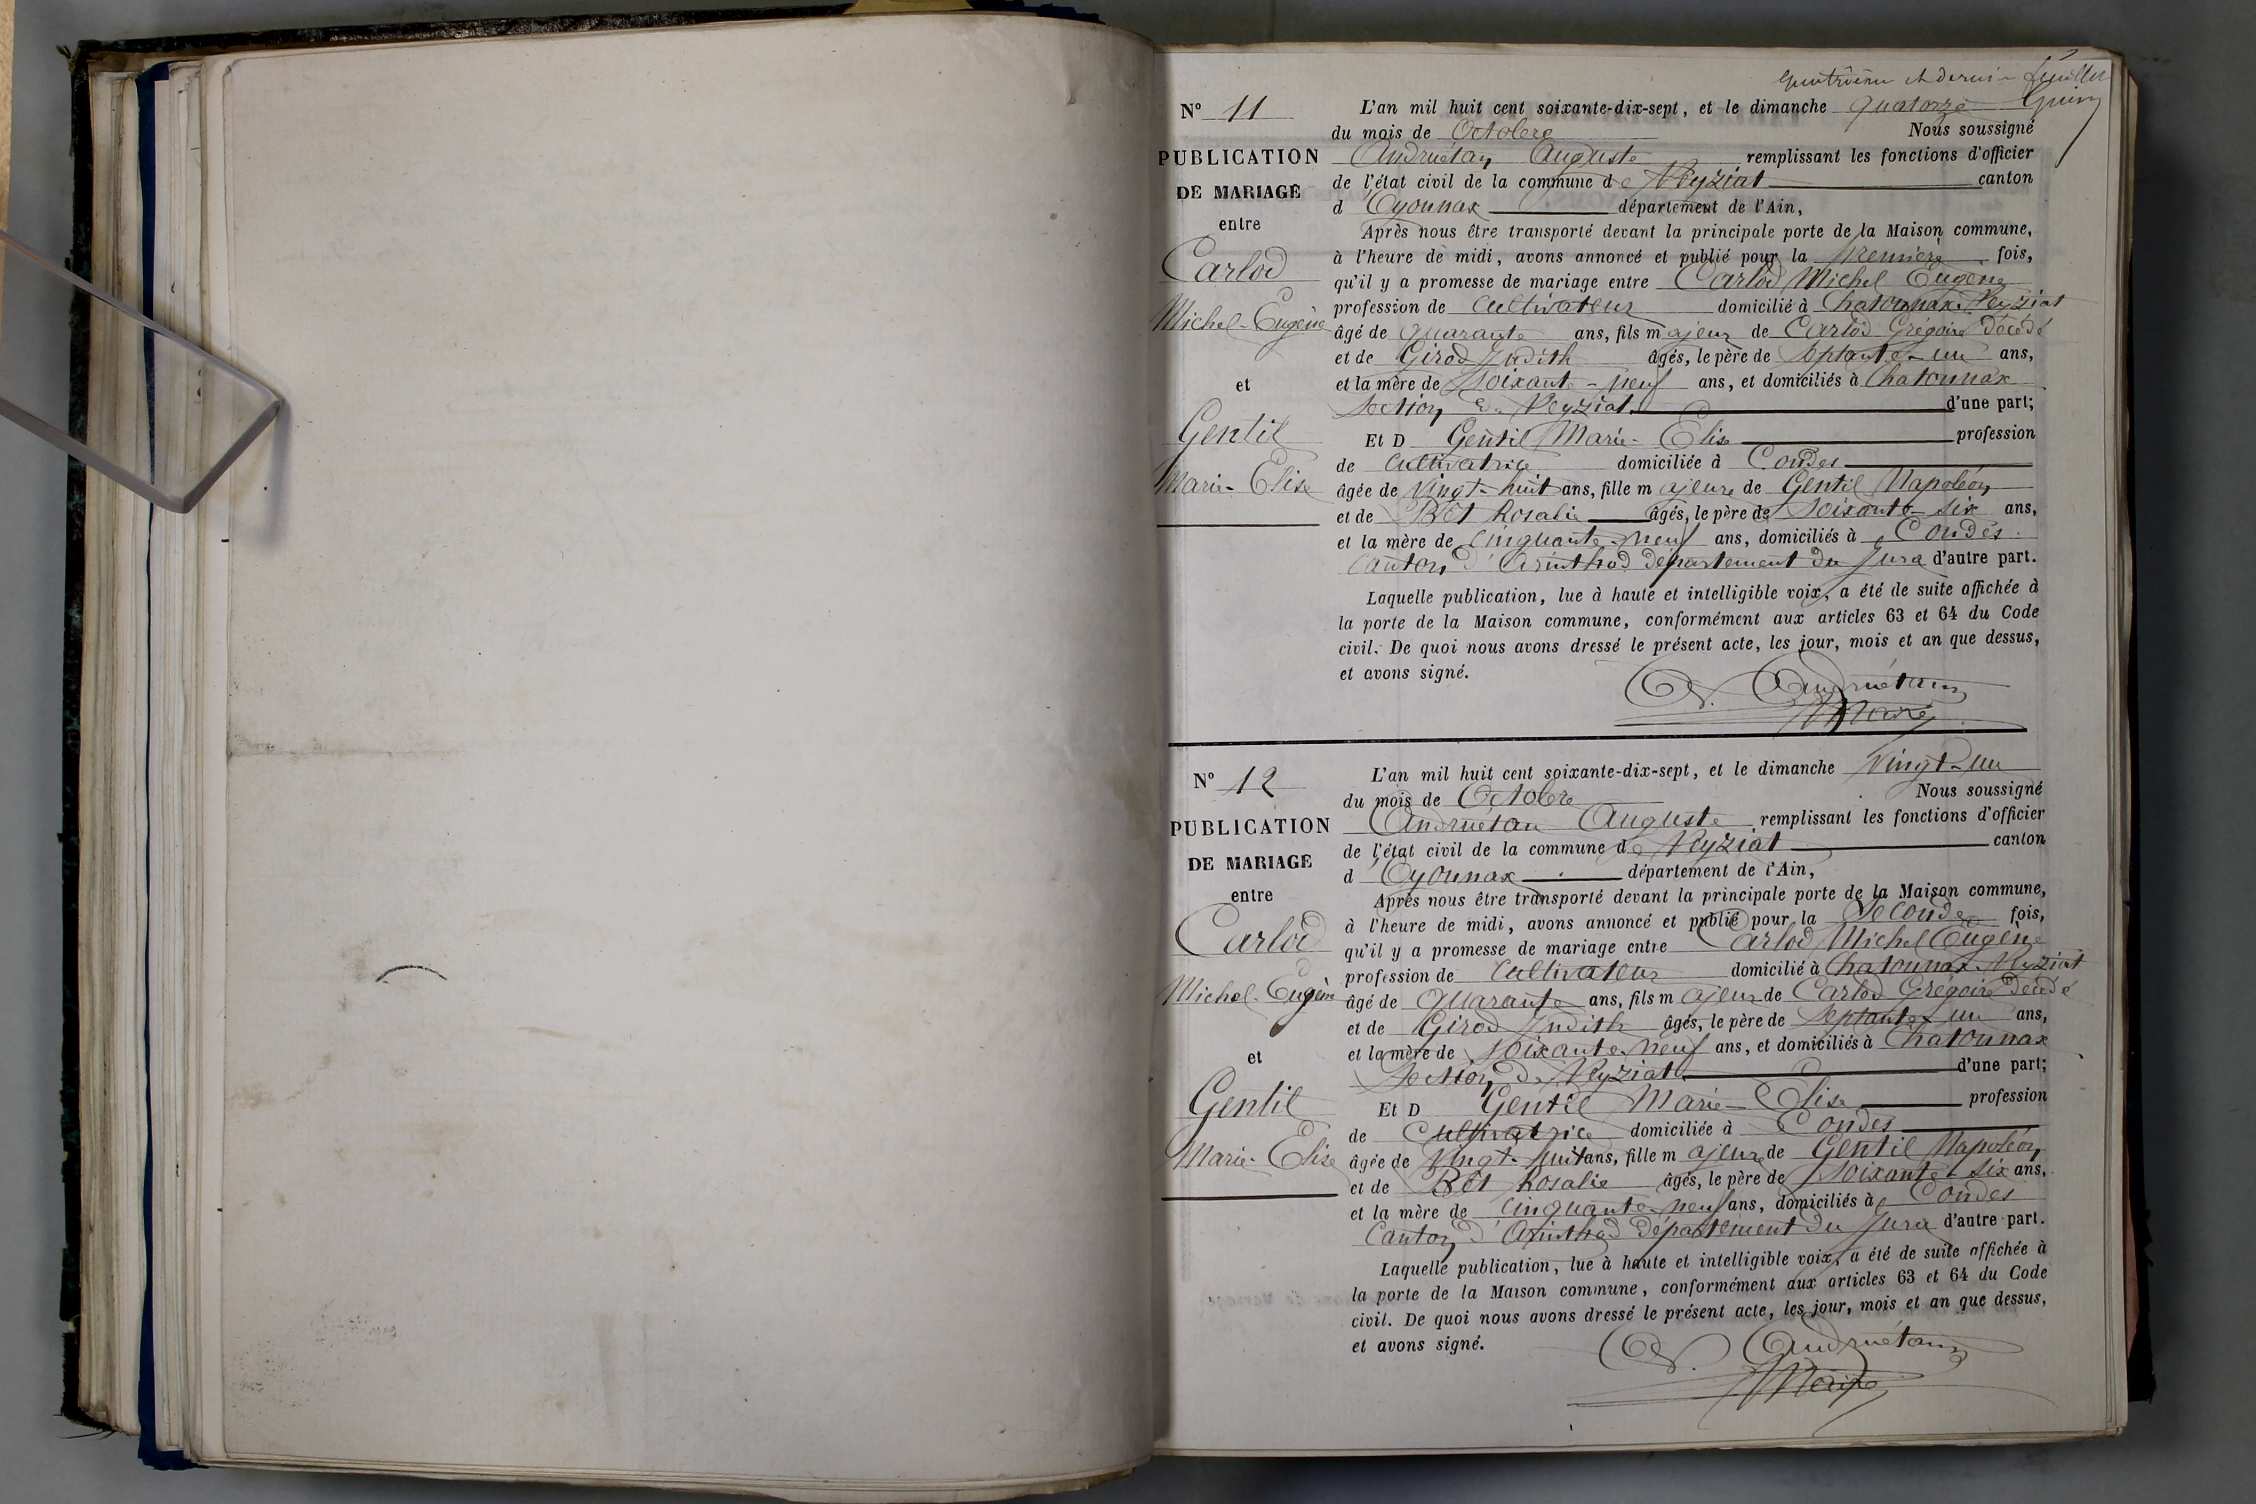 quatrième et dernier feuillet
N° 11
L'an mil huit cent soixante-dix-sept, et le dimanche quatorze
du mois de Octobre Nous soussigné
PUBLICATION
DE MARIAGE
entre
Carlod
Michel-Eugène
et
Gentil
Marie-Elise
Andruétan Auguste remplissant les fonctions d'officier
de l'état civil de la commune de Veyziat canton
d'Oyonnax département de l'Ain,
Après nous être transporté devant la principale porte de la Maison commune,
à l'heure de midi, avons annoncé et publié pour la Première fois,
qu'il y a promesse de mariage entre Carlod Michel Eugène
profession de Cultivateur domicilié à Chatonnax Veyziat
âgé de quarante ans, fils majeur de Carlod Grégoire décédé
et de Girod Judith âgés, le père de septante-un ans,
et la mère de soixante-neuf ans, et domiciliés à Chatonnax
section de Veyziat d'une part;
Et D Gentil Marie-Elise profession
de cultivatrice domiciliée à Condes
âgée de vingt-huit ans, fille majeure de Gentil Napoléon
et de Bêt Rosalie âgés, le père de soixante-six ans,
et la mère de cinquante-neuf ans, domiciliés à Condes
canton d'Arinthod département du Jura d'autre part.
Laquelle publication, lue à haute et intelligible voix, a été de suite affichée à
la porte de la Maison commune, conformément aux articles 63 et 64 du Code
civil. De quoi nous avons dressé le présent acte, les jour, mois et an que dessus,
et avons signé.
Andruétan
Maire
N° 12
L'an mil huit cent soixante-dix-sept, et le dimanche vingt-un
du mois de Octobre Nous soussigné
PUBLICATION
DE MARIAGE
entre
Carlod
Michel-Eugène
et
Gentil
Marie-Elise
Andruétan Auguste remplissant les fonctions d'officier
de l'état civil de la commune de Veyziat canton
d'Oyonnax département de l'Ain,
Après nous être transporté devant la principale porte de la Maison commune,
à l'heure de midi, avons annoncé et publié pour la Seconde fois,
qu'il y a promesse de mariage entre Carlod Michel Eugène
profession de Cultivateur domicilié à Chatonnax Veyziat
âgé de quarante ans, fils majeur de Carlod Grégoire décédé
et de Girod Judith âgés, le père de septante-un ans,
et la mère de soixante-neuf ans, et domiciliés à Chatonnax
section de Veyziat d'une part;
Et D Gentil Marie-Elise profession
de Cultivatrice domiciliée à Condes
âgée de vingt-huit ans, fille majeure de Gentil Napoléon
et de Bêt Rosalie âgés, le père de soixante-six ans,
et la mère de cinquante-neuf ans, domiciliés à Condes
Canton d'Arinthod département du Jura d'autre part.
Laquelle publication, lue à haute et intelligible voix, a été de suite affichée à
la porte de la Maison commune, conformément aux articles 63 et 64 du Code
civil. De quoi nous avons dressé le présent acte, les jour, mois et an que dessus,
et avons signé.
Andruétan
Maire